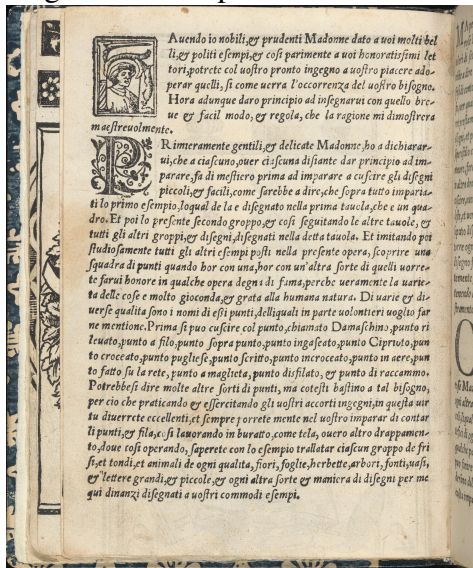 Auendo io nobili,& prudenti Madonne dato a uoi molti bel
li,& politi esempi,& cosi parimente a uoi honoratissimi let
tori,potrete col uostro pronto ingegno a uostro piacere ado-
perar quelli, si come uerra l'occorrenza del uostro bisogno.
Hora adunque daro principio ad insegnarui con quello bre-
ue & facil modo, & regola, che la ragione mi dimostrera
maestreuolmente.
PRimeramente gentili,& delicate Madonne,ho a dichiarar-
ui,che a ciascuno,ouer ciascuna disiante dar principio ad im-
parare,fa di mestiero prima ad imparare a cuscire gli disegni
piccoli,& facili,come sarebbe a dire,che sopra tutto imparia-
ti lo primo esempio,loqual de la e disegnato nella prima tauola,che e un qua-
dro. Et poi lo presente secondo gruppo,& cosi seguitando le altre tauole, &
tutti gli altri groppi,& disegni,disegnati nella detta tauola. Et imitando poi
studiosamente tutti gli altri esempi posti nella presente opera, scoprire una
squadra di punti quando hor con una,hor con un'altra sorte di quelli uorre-
te farui honore in qualche opera degna di fama,perche ueramente la uarie-
ta delle cose e molto gioconda,& grata alla humana natura. Di uarie & di-
uerse qualita sono i nomi di essi punti,delliquali in parte uolentieri uoglio far
ne mentione.Prima si puo cuscire col punto,chiamato Damaschino,punto ri
leuato,punto a filo,punto sopra punto,punto ingaseato,punto Ciprioto,pun
to croceato,punto pugliese,punto scritto,punto incroceato,punto in aere,pun
to fatto su la rete, punto a maglietta, punto disfilato, & punto di raccammo.
Potrebbesi dire molte altre sorti di punti, ma cotesti bastino a tal bisogno,
per cio che praticando & essercitando gli uostri accorti ingegni,in questa uir
tu diuerrete eccellenti,et sempre porrete mente nel uostro imparar di contar
li punti,& fila,cosi lauorando in buratto,come tela, ouero altro drappamen-
to,doue cosi operando, saperete con lo esempio trallatar ciascun groppo de fri
si,et tondi,et animali de ogni qualita, fiori, foglie,herbette,arbori, fonti,uasi,
& lettere grandi,& piccole,& ogni altra sorte & maniera di disegni per me
qui dinanzi disegnati a uostri commodi esempi.